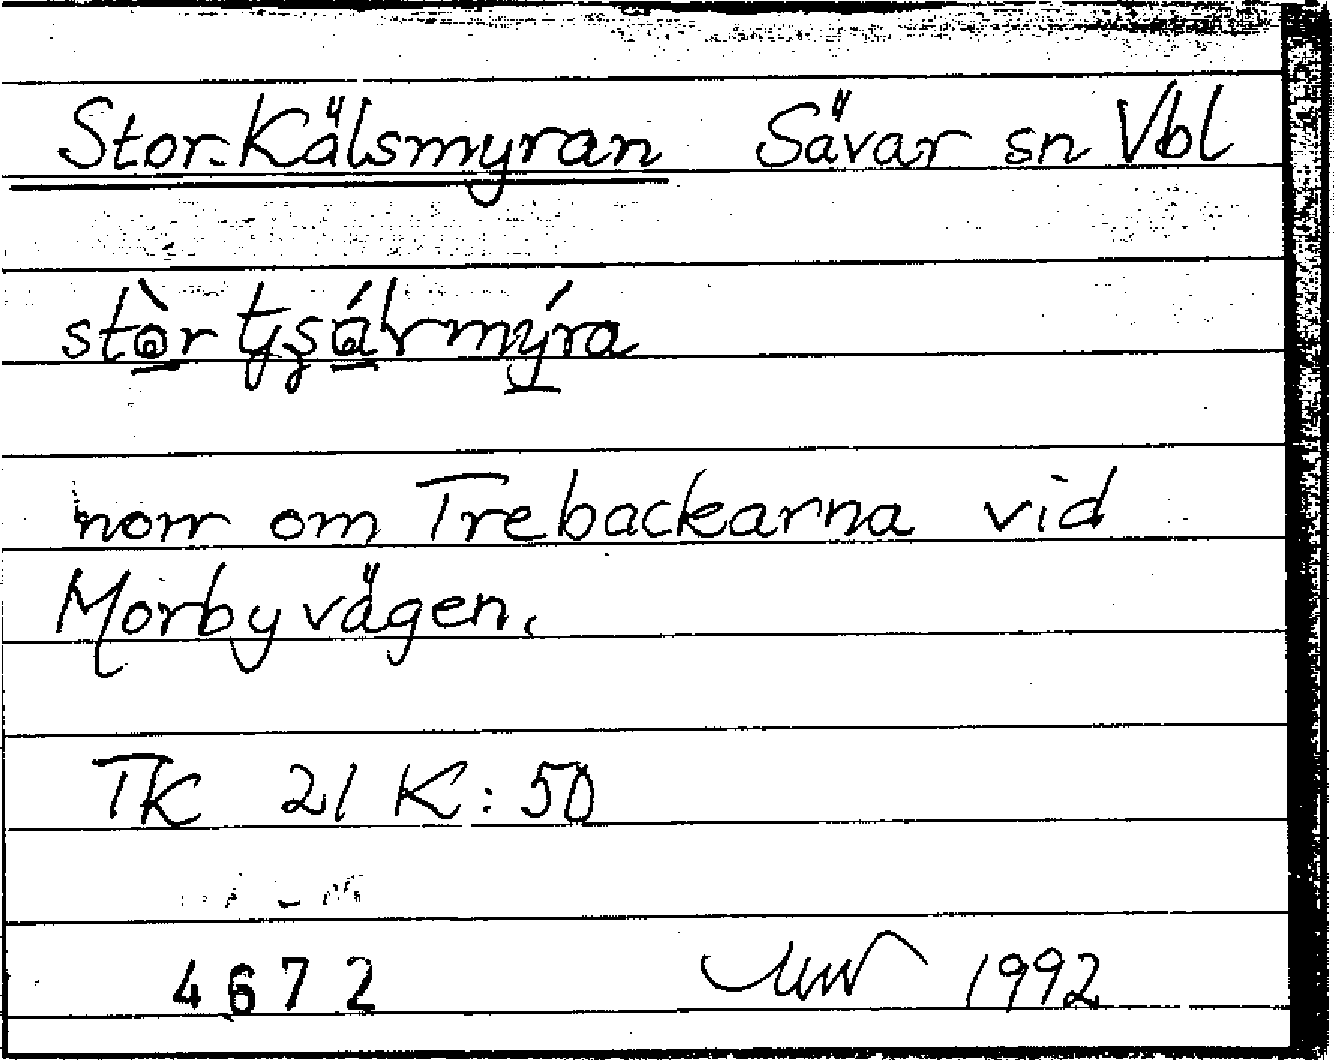 Stor-Kälsmyran Sävar sn Vbl
norr om Trebackarna vid
Mörbyvägen.
TK 21 K: 50
4672 1992